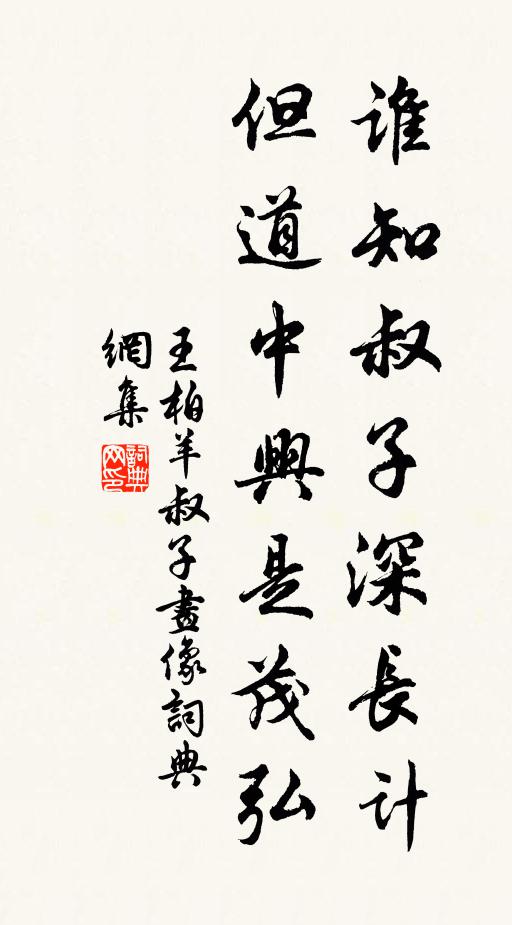 誰知叔子深長計
但道中興是茂弘
王柏羊叔子畫像詞典
網集
詞典網印